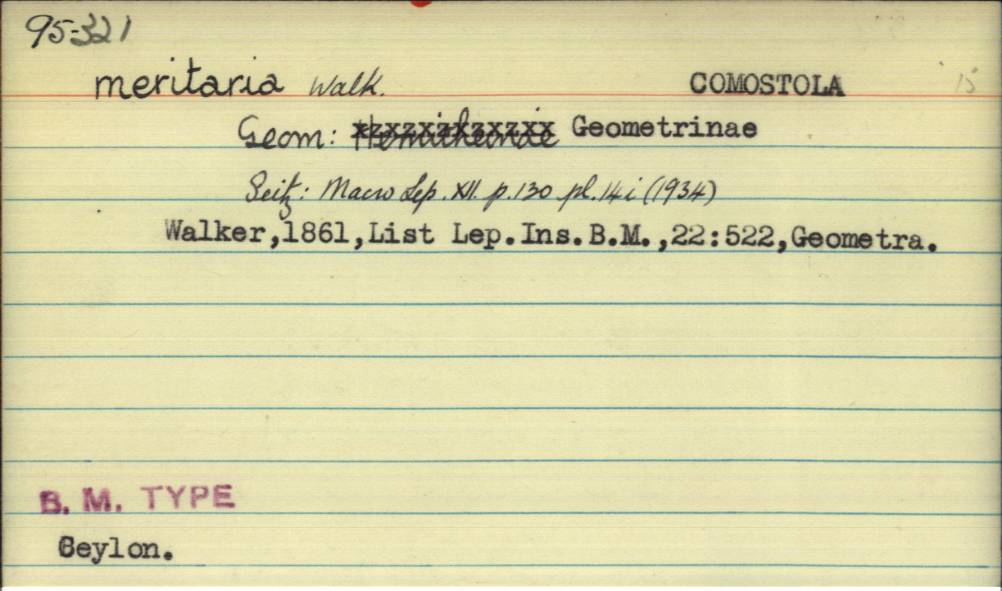 95-321
meritaria Walk. COMOSTOLA 15
Geom: Hemitheinae Geometrinae
Seitz: Macro Lep. XII. p.130 pl.14i (1934)
Walker,1861,List Lep.Ins.B.M.,22:522,Geometra.
B. M. TYPE
Ceylon.